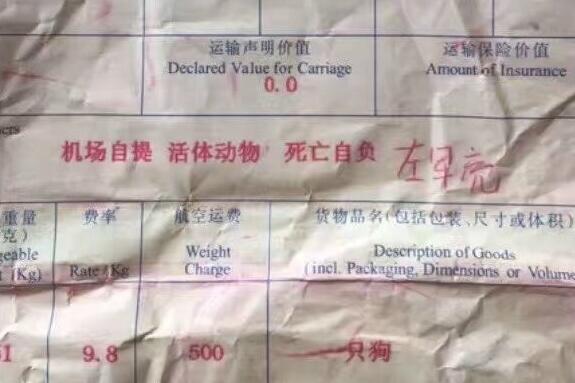 运输声明价值 运输保险价值
Declared Value for Carriage Amount of Insurance
0.0
机场自提 活体动物 死亡自负
重量 费率 航空运费 货物品名(包括包装、尺寸或体积)
克)
Rate/Kg Weight Charge Description of Goods
(Kg) (incl. Packaging, Dimensions or Volume
9.8 500 一只狗